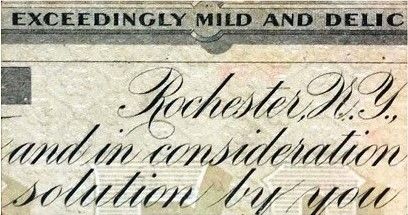 EXCEEDINGLY MILD AND DELIC
Rochester, N.Y.,
and in consideration
solution by you